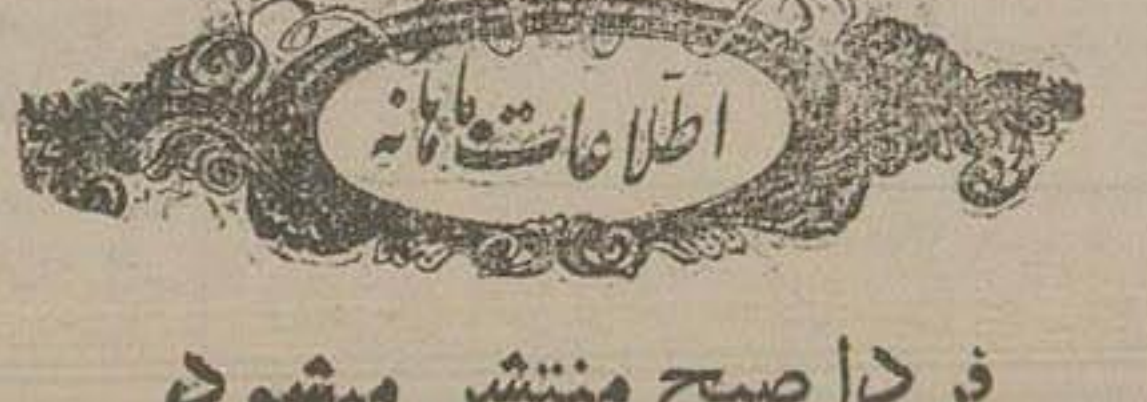 اطلاعات ماهانه
فردا صبح منتشر میشود